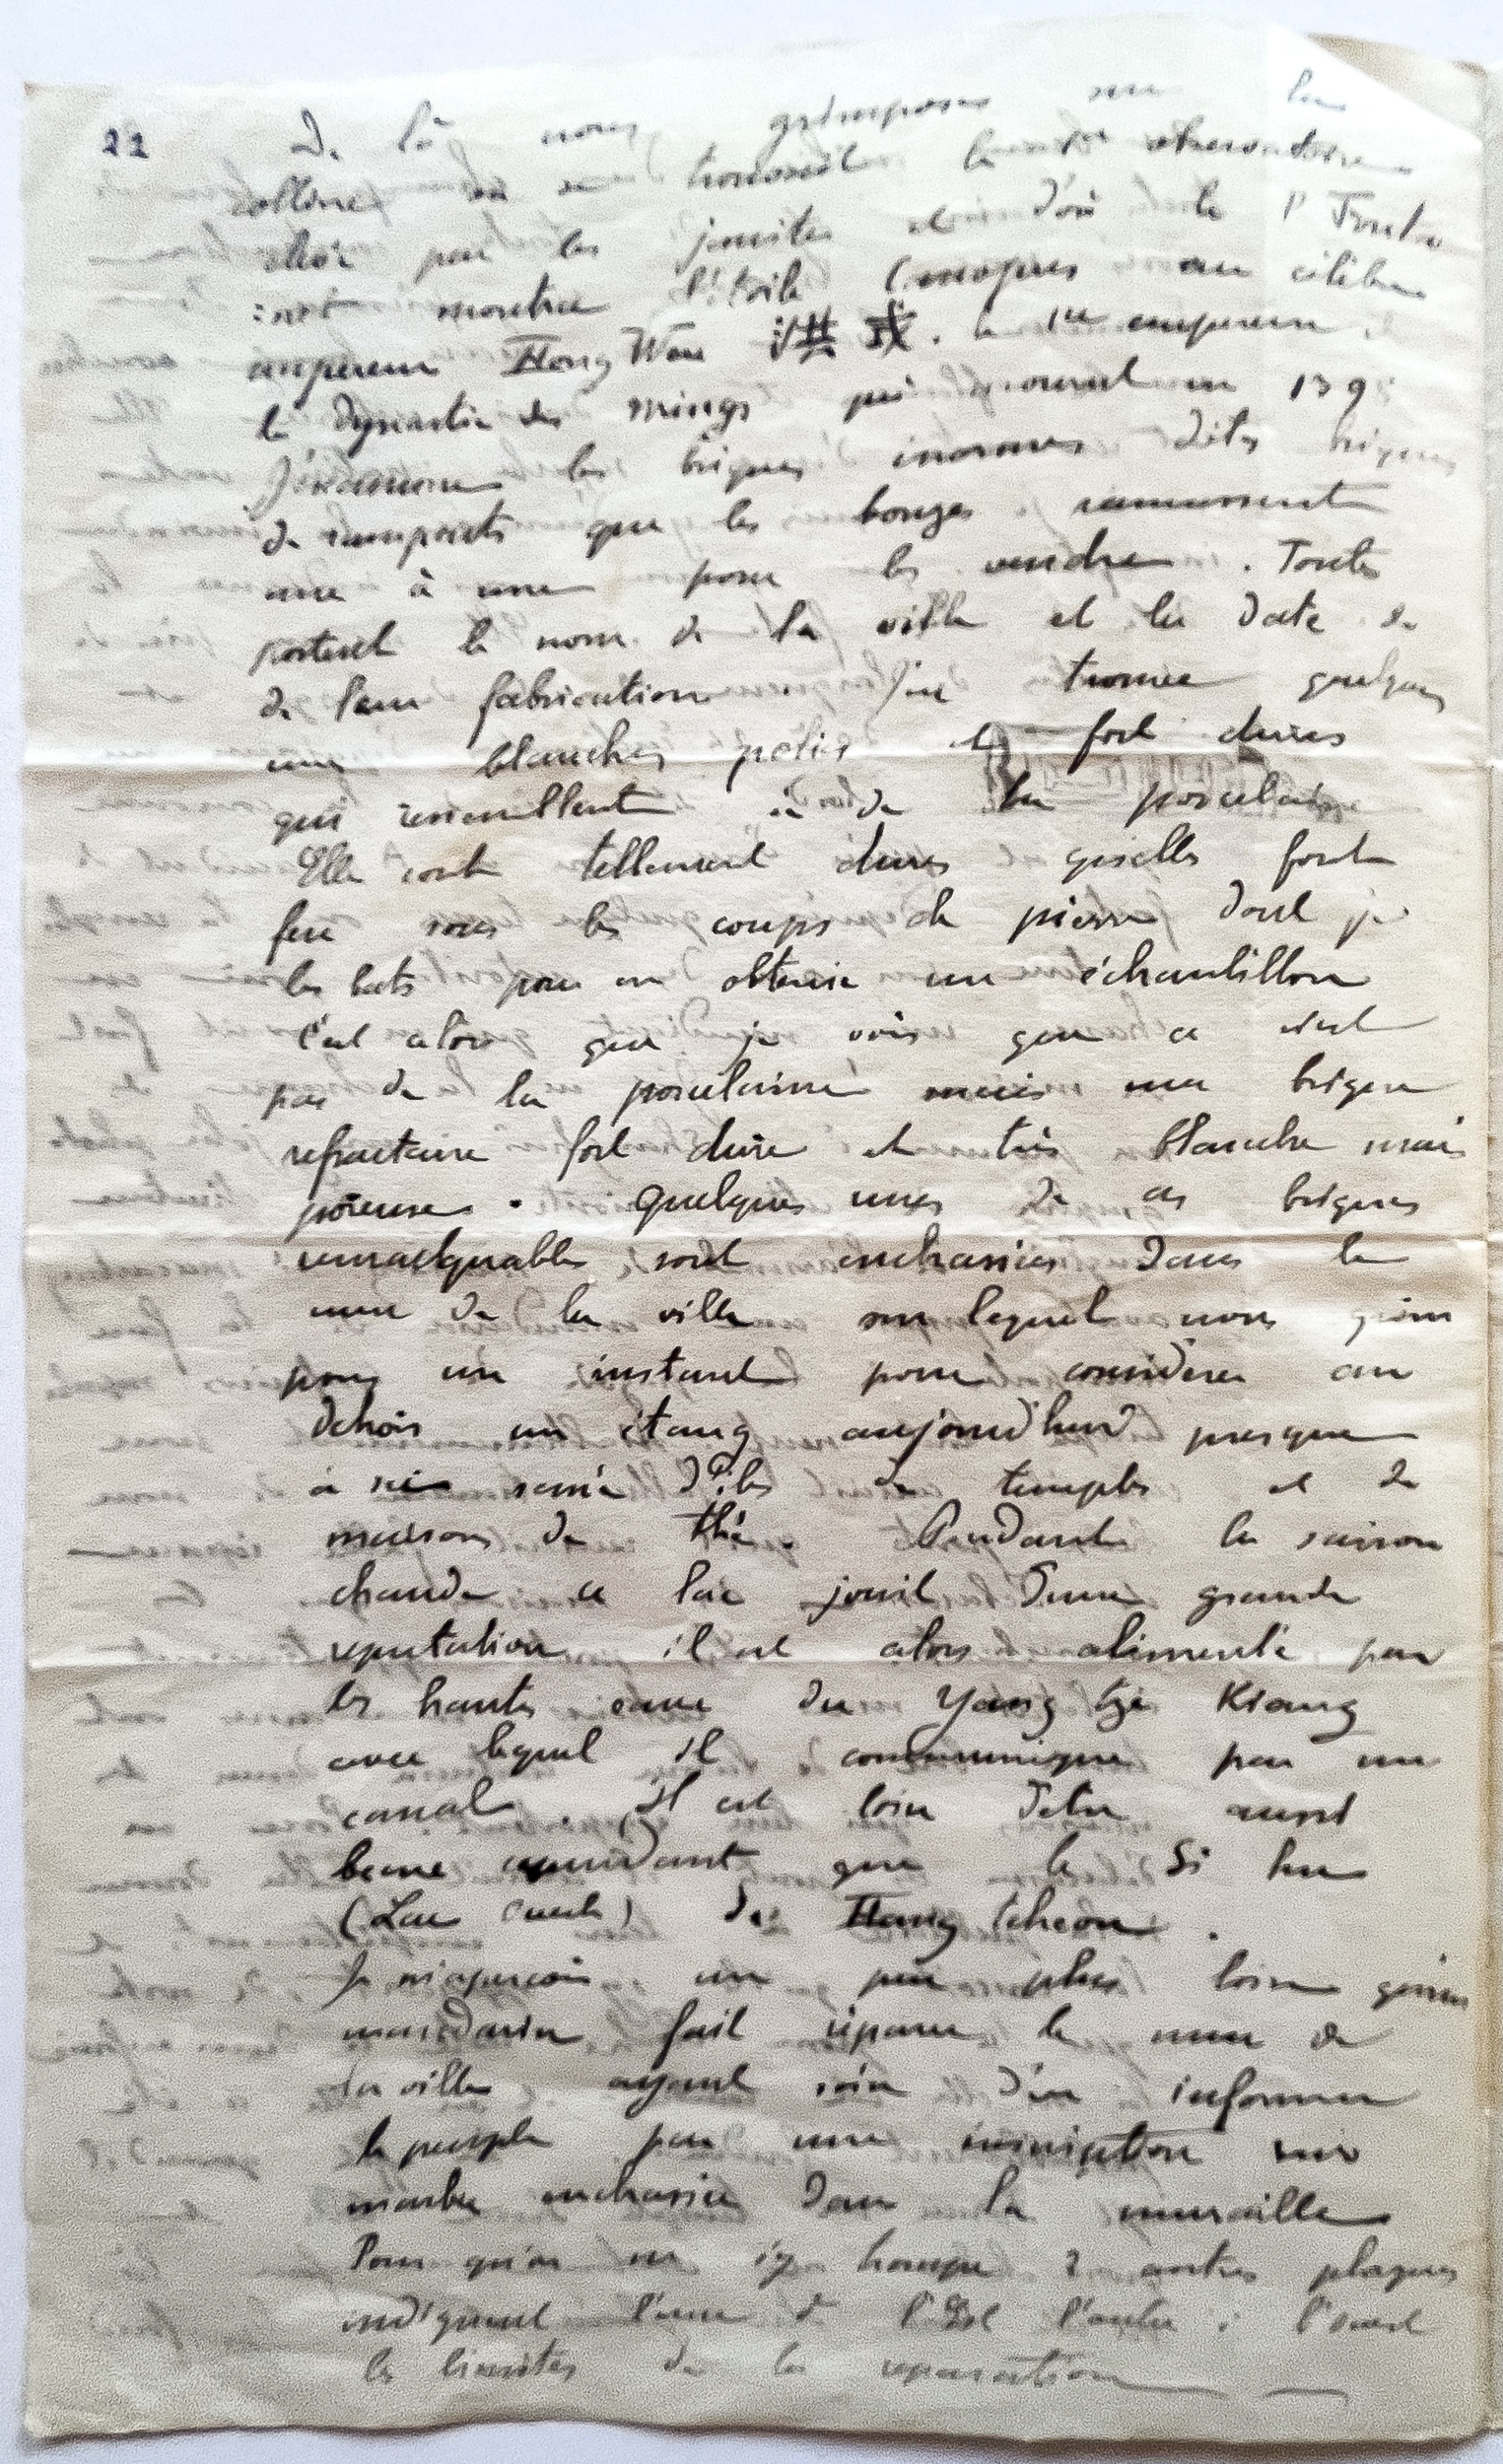 22 De là nous grimpons sur la
colline où se trouvait le 1er observatoire
élevé par les jesuites et d'où le P
montra l'étoile Canopus au célèbre
empereur Hong Wou 洪武. le 1er empereur
la dynastie des mings qui mourut en 139
J'examine les briques énormes dites briques
de remparts que les bonzes ramassent
une à une pour les vendre. Toutes
portent le nom de la ville et la date de
de leur fabrication. J'en trouve quelques
unes blanches polies et fort dures
qui ressemblent à de la porcelaine
Elles sont tellement dures qu'elles font
feu sous les coups de pierre dont je
les bats pour en obtenir un échantillon
C'est alors que je vois que ce n'est
pas de la porcelaine mais une brique
refractaire fort dure et très blanche mais
poreuse. Quelques unes de ces briques
remarquables sont enchassées dans le
mur de la ville sur lequel nous grim
pons un instant pour considerer au
dehors un étang aujourd'hui presque
à sec semé d'îles de temples et de
maisons de thé. Pendant la saison
chaude ce lac jouit d'une grande
reputation il est alors alimenté par
les hautes eaux du Yang tze Kiang
avec lequel il communique par un
canal. Il est loin d'etre aussi
beau cependant que le Si hu
(Lac ouest) de Hang tcheou.
Je m'aperçois un peu plus loin qu'un
mandarin fait réparer le mur de
la ville ayant soin d'en informer
le peuple par une inscription sur
marbre enchassée dans la muraille
Pour qu'on ne s'y trompe 2 autres plaques
indiquent l'une à l'Est l'autre à l'ouest
les limites de la reparation